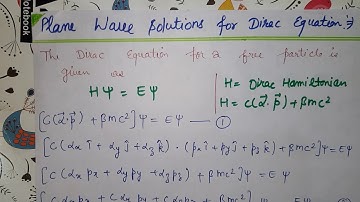 Notebook
Plane Wave Solutions for Dirac Equation:→
The Dirac Equation for a free particle is
given as
Hψ = Eψ
H = Dirac Hamiltonian
H = c(α⃗.p⃗) + βmc²
[c(α⃗.p⃗) + βmc²]ψ = Eψ —— ①
[c(αx î + αy ĵ + αz k̂).(px î + py ĵ + pz k̂) + βmc²]ψ = Eψ
[c(αx px + αy py + αz pz) + βmc²]ψ = Eψ